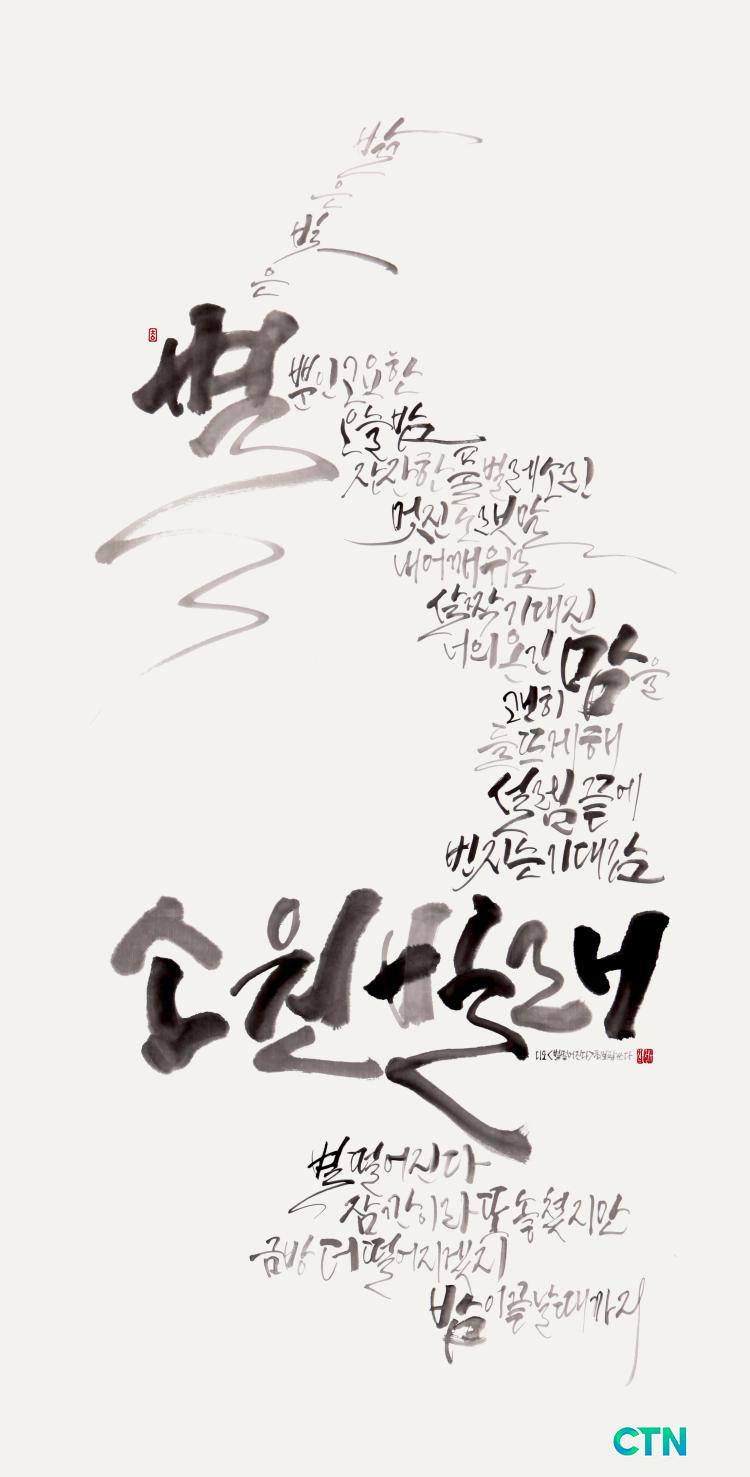 밝
은
빛
은
별뿐인 고요한
오늘 밤
잔잔한 풀벌레 소린
멋진 노랫말
내 어깨 위로
살짝 기대진
너의 온긴 맘을
괜히
들뜨게 해
설렘 끝에
번지는 기대감
소원 빌래
디오 <별 떨어진다>
별 떨어진다
잠깐이라 또 놓쳤지만
금방 더 떨어지겠지
밤이 끝날 때까지
CTN